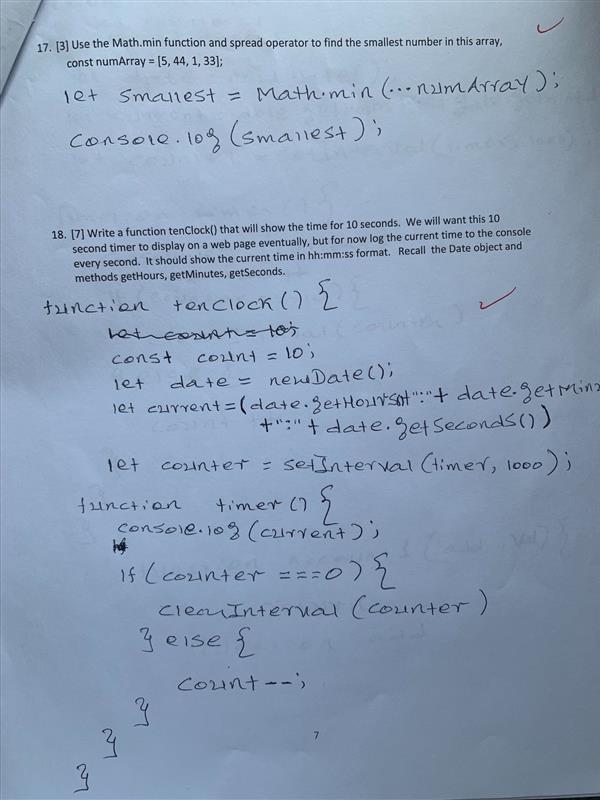 17. [3] Use the Math.min function and spread operator to find the smallest number in this array,
const numArray = [5, 44, 1, 33];
let smallest = Math.min (...numArray);
console.log (smallest);
18. [7] Write a function tenClock() that will show the time for 10 seconds. We will want this 10
second timer to display on a web page eventually, but for now log the current time to the console
every second. It should show the current time in hh:mm:ss format. Recall the Date object and
methods getHours, getMinutes, getSeconds.
function tenclock () {
let count = 10;
const count = 10;
let date = newDate();
let current=(date.getHours()+":"+ date.getMin
+":"+ date.getSeconds())
let counter = setInterval (timer, 1000);
function timer () {
console.log (current);
if (counter ===0) {
clearInterval (counter)
} else {
count--;
}
}
}
7